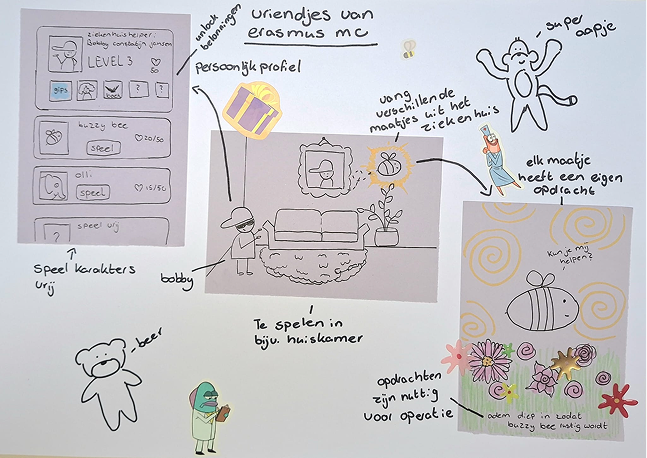 vriendjes van
erasmus mc
ziekenhuishelper:
Bobby constatijn jansen
LEVEL 3
50
gips
boek
?
?
buzzy bee
speel
20/50
olli
speel
15/50
?
speel vrij
unlock
beloningen
persoonlijk profiel
speel karakters
vrij
vang
verschillende
maatjes uit het
ziekenhuis
super
aapje
elk maatje
heeft een eigen
opdracht
bobby
Te spelen in
bijv. huiskamer
beer
Kun je mij
helpen?
opdrachten
zijn nuttig
voor operatie
adem diep in zodat
buzzy bee rustig wordt